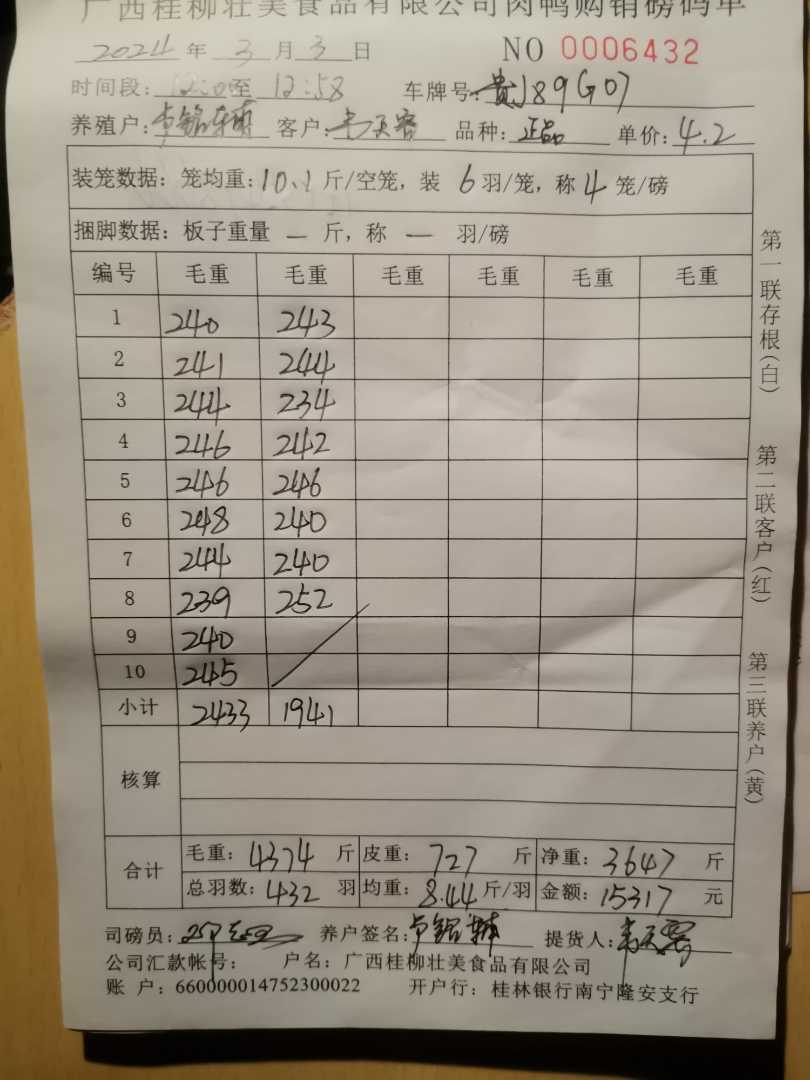 广西桂柳壮美食品有限公司肉鸭购销磅码单
2024 年 3 月 3 日 NO 0006432
时间段: 12:0 至 12:58 车牌号: 贵J89G07
养殖户: 客户: 韦天客 品种: 正品 单价: 4.2
装笼数据: 笼均重: 10.1 斤/空笼, 装 6 羽/笼, 称 4 笼/磅
捆脚数据: 板子重量 — 斤, 称 — 羽/磅
编号 毛重 毛重 毛重 毛重 毛重 毛重
1 240 243
2 241 244
3 244 234
4 246 242
5 246 246
6 248 240
7 244 240
8 239 252
9 240
10 245
小计 2433 1941
核算
合计 毛重: 4374 斤 皮重: 727 斤 净重: 3647 斤
总羽数: 432 羽 均重: 8.44 斤/羽 金额: 15317 元
司磅员: 养户签名: 提货人: 韦天客
公司汇款帐号: 户名: 广西桂柳壮美食品有限公司
账 户: 660000014752300022 开户行: 桂林银行南宁隆安支行
第一联存根(白)
第二联客户(红)
第三联养户(黄)